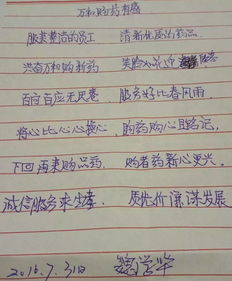 万和购药有感
服装整洁的员工 清新优质的药品
万和购新药 笑脸
百应百应无厌卷 服务好比春风雨
将心比心心换心 购药购心且铭记
下回再来购品药 购者药新心更兴
诚信服务求生 质优价谋发展
2016.7.31日